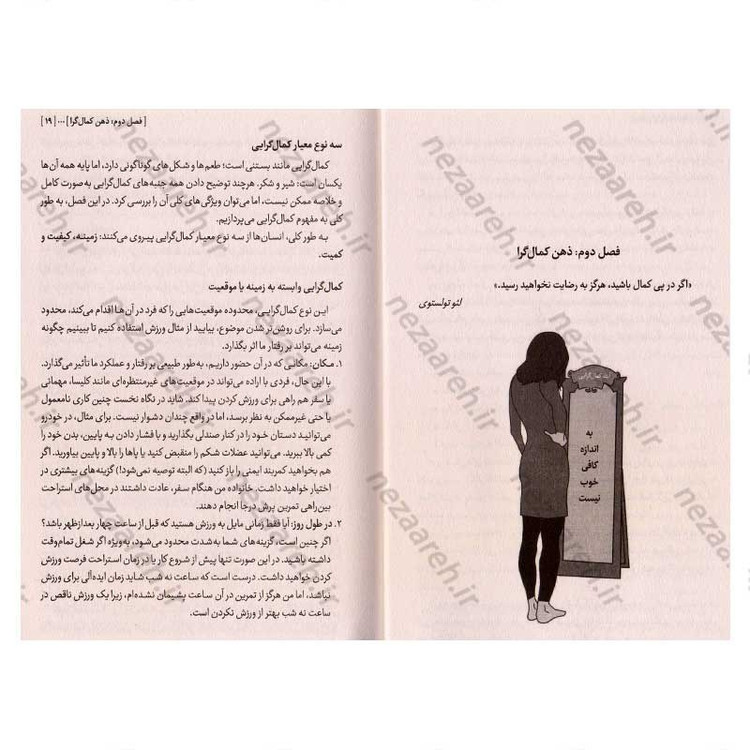 فصل دوم: ذهن کمال‌گرا
«اگر در پی کمال باشید، هرگز به رضایت نخواهید رسید.»
لئو تولستوی
به
اندازه
کافی
خوب
نیست
[ فصل دوم: ذهن کمال‌گرا ] ... [ ۱۹ ]
سه نوع معیار کمال‌گرایی
کمال‌گرایی مانند بستنی است؛ طعم‌ها و شکل‌های گوناگونی دارد، اما پایه همه آن‌ها
یکسان است: شیر و شکر. هرچند توضیح دادن همه جنبه‌های کمال‌گرایی به‌صورت کامل
و خلاصه ممکن نیست، اما می‌توان ویژگی‌های کلی آن را بررسی کرد. در این فصل، به طور
کلی به مفهوم کمال‌گرایی می‌پردازیم.
به طور کلی، انسان‌ها از سه نوع معیار کمال‌گرایی پیروی می‌کنند: زمینه، کیفیت و
کمیت.
کمال‌گرایی وابسته به زمینه یا موقعیت
این نوع کمال‌گرایی، محدوده موقعیت‌هایی را که فرد در آن‌ها اقدام می‌کند، محدود
می‌سازد. برای روشن‌تر شدن موضوع، بیایید از مثال ورزش استفاده کنیم تا ببینیم چگونه
زمینه می‌تواند بر رفتار ما اثر بگذارد.
۱. مکان: مکانی که در آن حضور داریم، به‌طور طبیعی بر رفتار و عملکرد ما تأثیر می‌گذارد.
با این حال، فردی با اراده می‌تواند در موقعیت‌های غیرمنتظره‌ای مانند کلیسا، مهمانی
یا سفر هم راهی برای ورزش کردن پیدا کند. شاید در نگاه نخست چنین کاری نامعمول
یا حتی غیرممکن به نظر برسد، اما در واقع چندان دشوار نیست. برای مثال، در خودرو
می‌توانید دستان خود را در کنار صندلی بگذارید و با فشار دادن به پایین، بدن خود را
کمی بالا ببرید. می‌توانید عضلات شکم را منقبض کنید یا پاها را بالا و پایین بیاورید. اگر
هم بخواهید کمربند ایمنی را باز کنید (که البته توصیه نمی‌شود!) گزینه‌های بیشتری در
اختیار خواهید داشت. خانواده من هنگام سفر، عادت داشتند در محل‌های استراحت
بین‌راهی تمرین پرش درجا انجام دهند.
۲. در طول روز: آیا فقط زمانی مایل به ورزش هستید که قبل از ساعت چهار بعدازظهر باشد؟
اگر چنین است، گزینه‌های شما به‌شدت محدود می‌شود، به‌ویژه اگر شغل تمام‌وقت
داشته باشید. در این صورت تنها پیش از شروع کار یا در زمان استراحت فرصت ورزش
کردن خواهید داشت. درست است که ساعت نه شب شاید زمان ایده‌آلی برای ورزش
نباشد، اما من هرگز از تمرین در آن ساعت پشیمان نشده‌ام، زیرا یک ورزش ناقص در
ساعت نه شب بهتر از ورزش نکردن است.
nezaareh.ir
nezaareh.ir
nezaareh.ir
nezaareh.ir
nezaareh.ir
nezaareh.ir